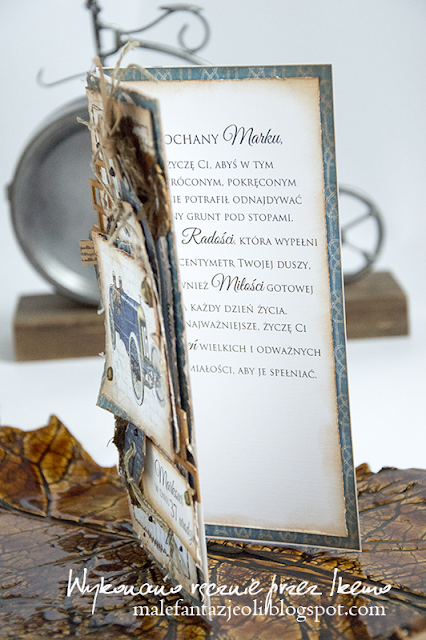 OCHANY Marku,
ŻYCZĘ CI, ABYŚ W TYM
RÓCONYM, POKRĘCONYM
IE POTRAFIŁ ODNAJDYWAĆ
NY GRUNT POD STOPAMI.
Radości, KTÓRA WYPEŁNI
CENTYMETR TWOJEJ DUSZY,
WNIEŻ Miłości GOTOWEJ
A KAŻDY DZIEŃ ŻYCIA.
NAJWAŻNIEJSZE, ŻYCZĘ CI
eń WIELKICH I ODWAŻNYCH
MIAŁOŚCI, ABY JE SPEŁNIAĆ.
Markowi
37
Wykonano ręcznie przez Ikemo
malefantazjeoli.blogspot.com